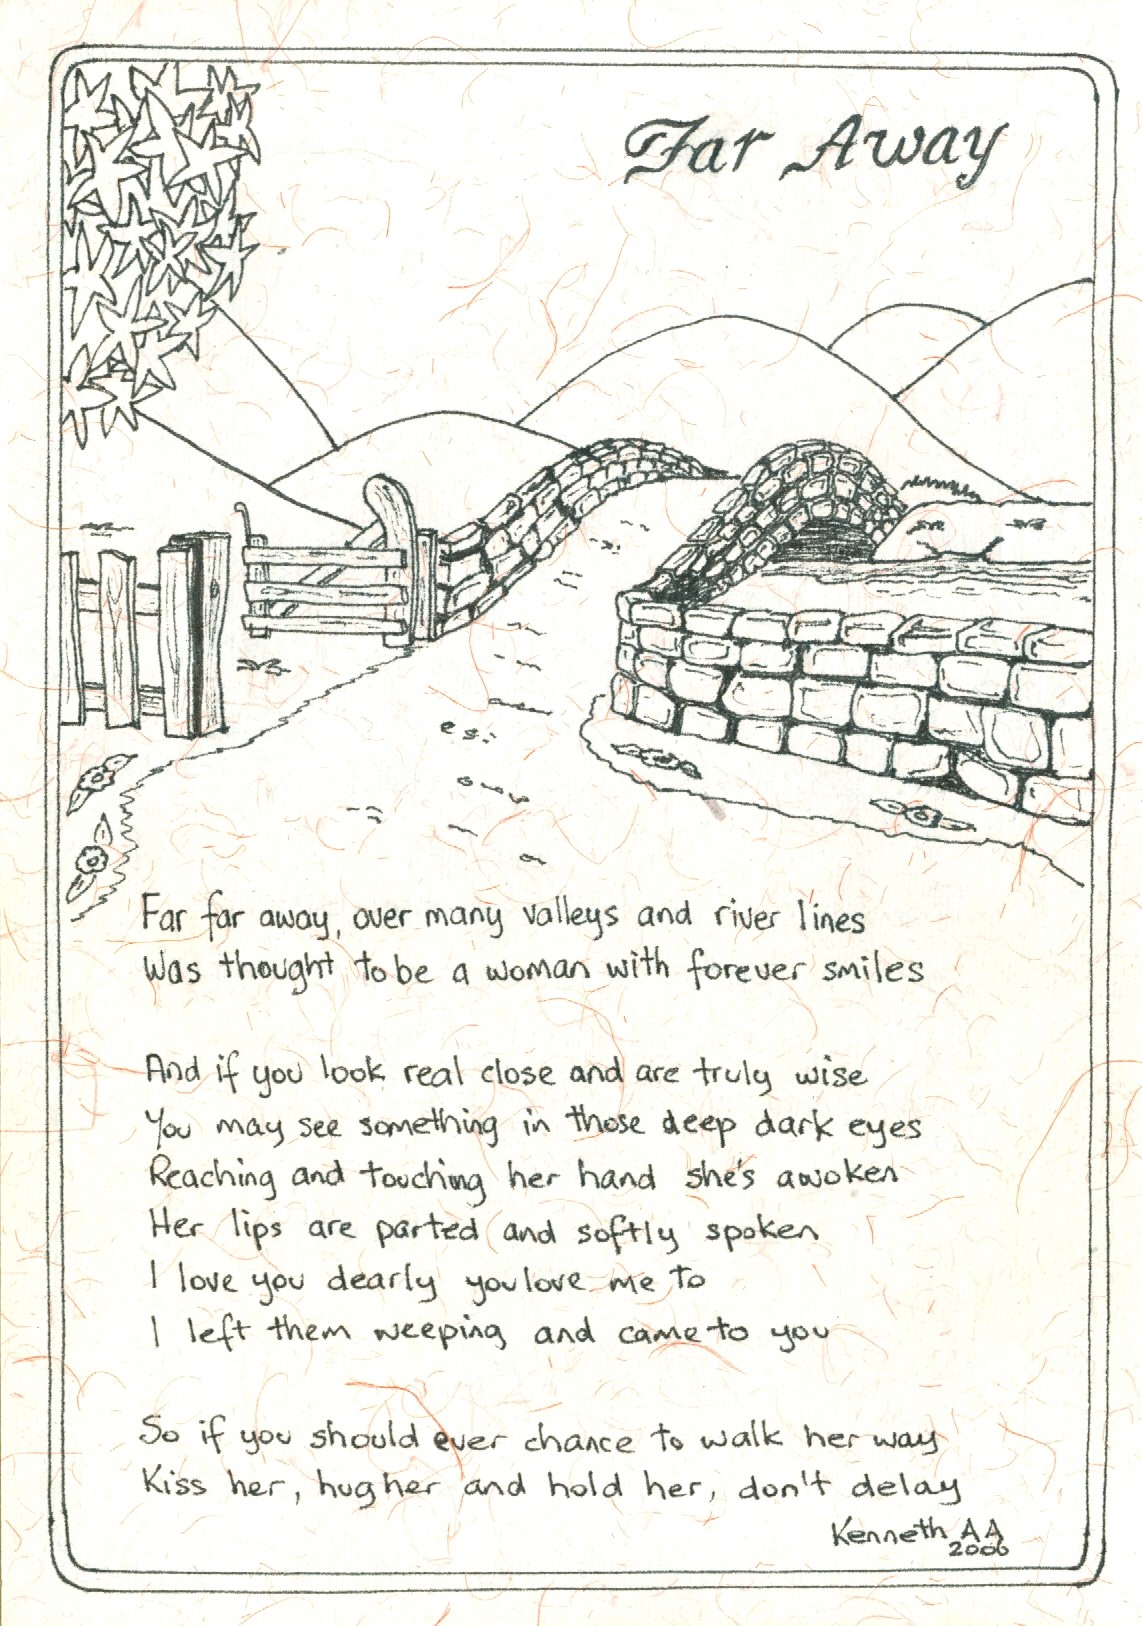 Far Away
Far far away, over many valleys and river lines
Was thought to be a woman with forever smiles
And if you look real close and are truly wise
You may see something in those deep dark eyes
Reaching and touching her hand she's awoken
Her lips are parted and softly spoken
I love you dearly you love me to
I left them weeping and came to you
So if you should ever chance to walk her way
Kiss her, hug her and hold her, don't delay
Kenneth AA
2006